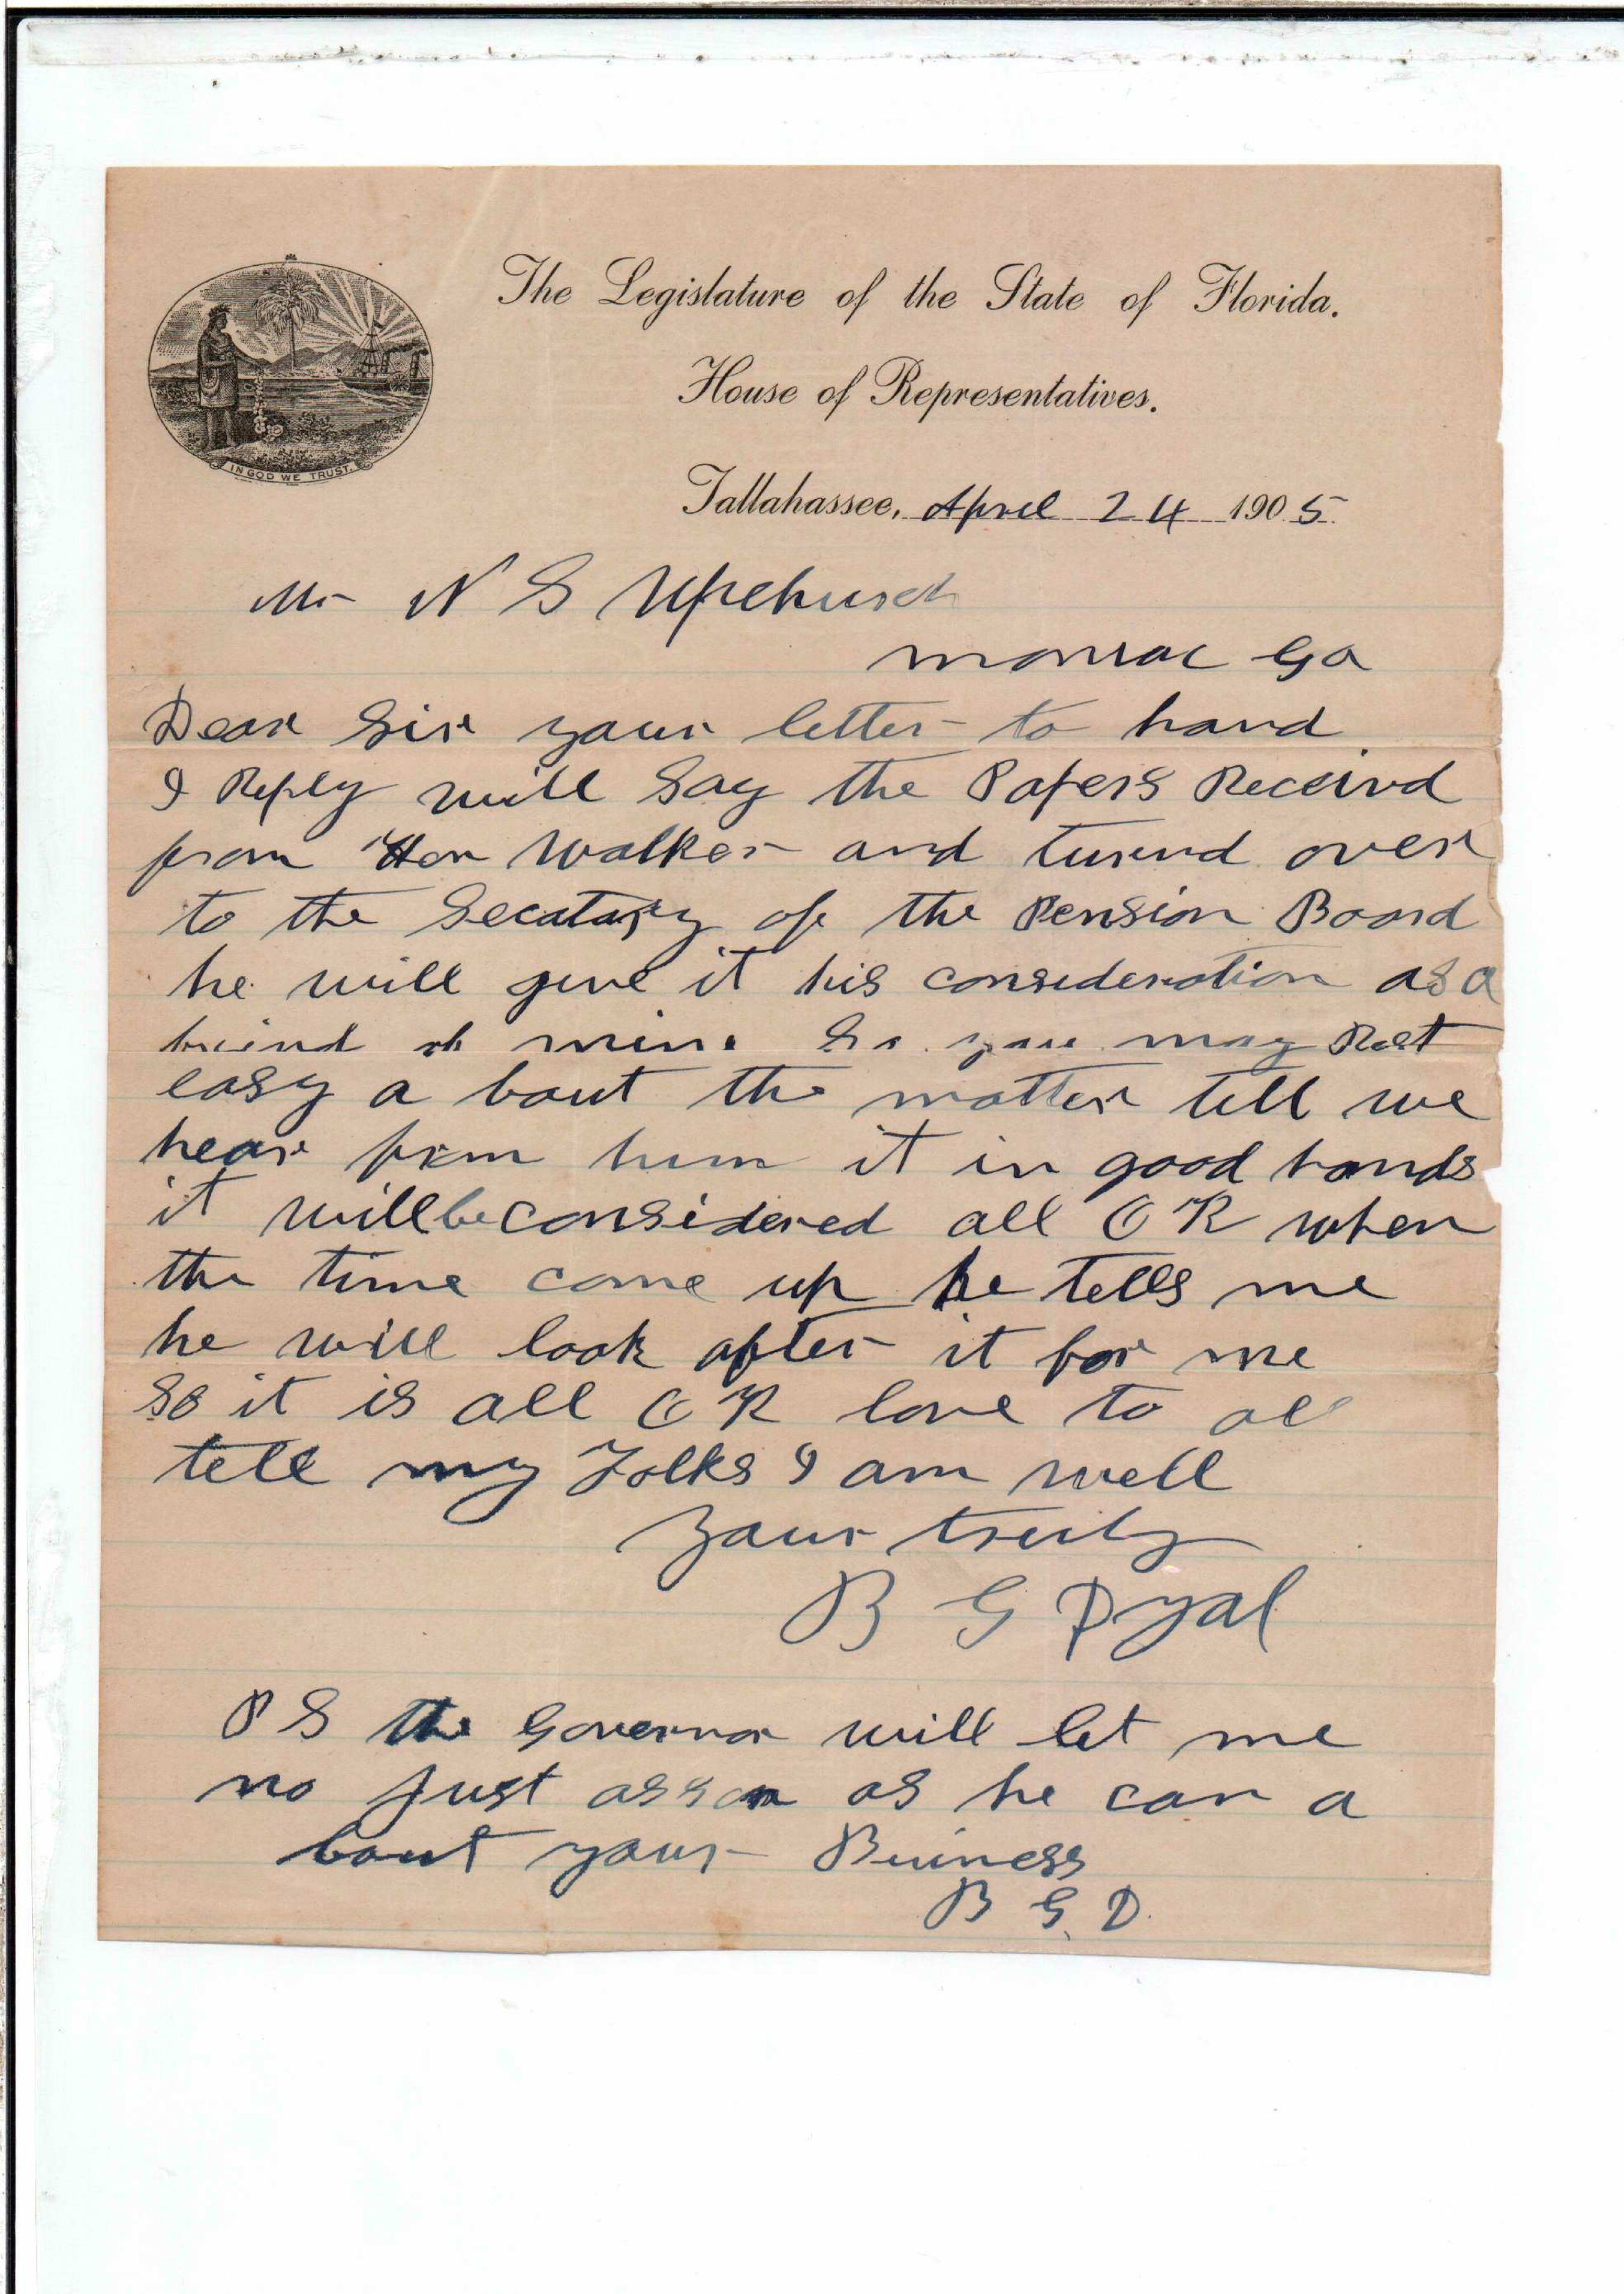 The Legislature of the State of Florida.
House of Representatives.
IN GOD WE TRUST.
Tallahassee, April 24 1905
Mr N S Upchurch
moniac Ga
Dear Sir your letter to hand
I Reply will Say the Papers Receivd
from Hon Walker and turnd over
to the Secatary of the Pension Board
he will give it his consideration as a
friend of mine So you may Rest
easy a bout the matter tell we
hear from him it in good hands
it will be considered all O K when
the time come up he tells me
he will look after it for me
So it is all O K love to all
tell my Folks I am well
your truly
B G Dyal
P S the Governor will let me
no Just as son as he can a
bout your Buiness
B G. D.